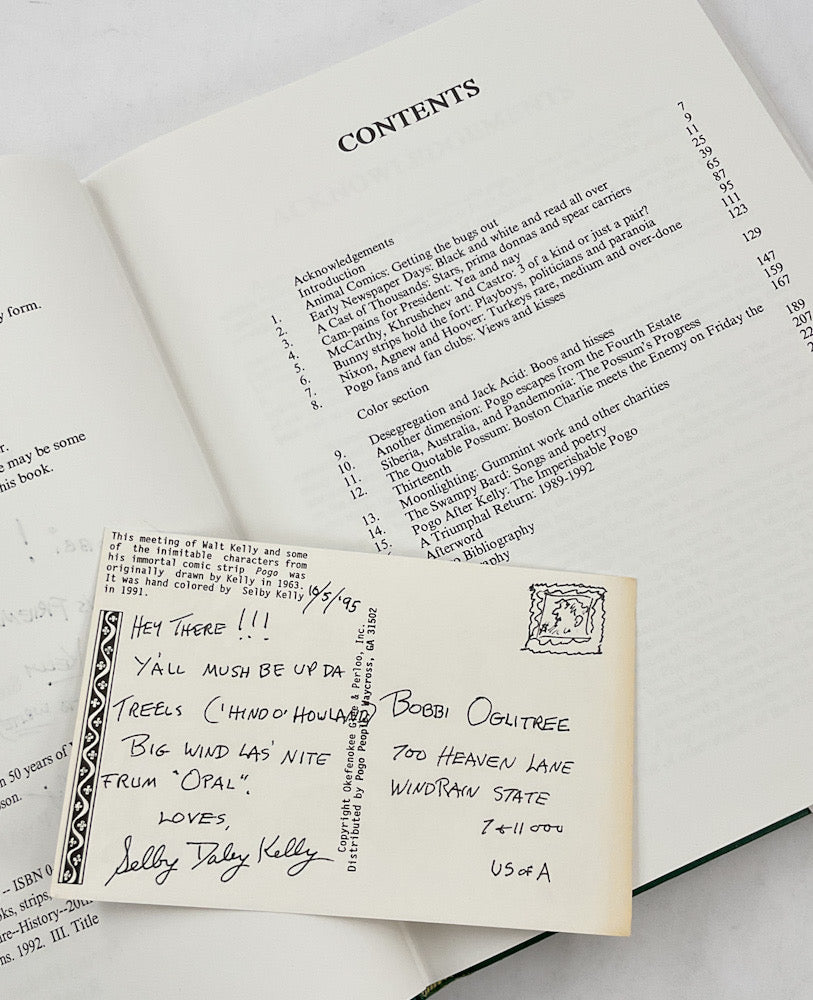 y form.
r.
e may be some
his book.
n 50 years of
son.
-- ISBN 0
ks, strips,
re--History--20th
ns. 1992. III. Title
CONTENTS
Acknowledgements 7
Introduction 9
1. Animal Comics: Getting the bugs out 11
2. Early Newspaper Days: Black and white and read all over 25
3. A Cast of Thousands: Stars, prima donnas and spear carriers 39
4. Cam-pains for President: Yea and nay 65
5. McCarthy, Khrushchev and Castro: 3 of a kind or just a pair? 87
6. Bunny strips hold the fort: Playboys, politicians and paranoia 95
7. Nixon, Agnew and Hoover: Turkeys rare, medium and over-done 111
8. Pogo fans and fan clubs: Views and kisses 123
Color section 129
9. Desegregation and Jack Acid: Boos and hisses 147
10. Another dimension: Pogo escapes from the Fourth Estate 159
11. Siberia, Australia, and Pandemonia: The Possum's Progress 167
12. The Quotable Possum: Boston Charlie meets the Enemy on Friday the
Thirteenth 189
13. Moonlighting: Gummint work and other charities 207
14. The Swampy Bard: Songs and poetry 22
15. Pogo After Kelly: The Imperishable Pogo
A Triumphal Return: 1989-1992
Afterword
o Bibliography
graphy
This meeting of Walt Kelly and some
of the inimitable characters from
his immortal comic strip Pogo was
originally drawn by Kelly in 1963.
It was hand colored by Selby Kelly
in 1991.
10/5/'95
HEY THERE !!!
Y'ALL MUSH BE UP DA
TREELS ('HIND O' HOWLAND)
BIG WIND LAS' NITE
FRUM "OPAL".
LOVES,
Selby Daley Kelly
Copyright Okefenokee Glee & Perloo, Inc.
Distributed by Pogo People, Waycross, GA 31502
BOBBI OGLITREE
700 HEAVEN LANE
WINDRAIN STATE
7+11 000
US of A